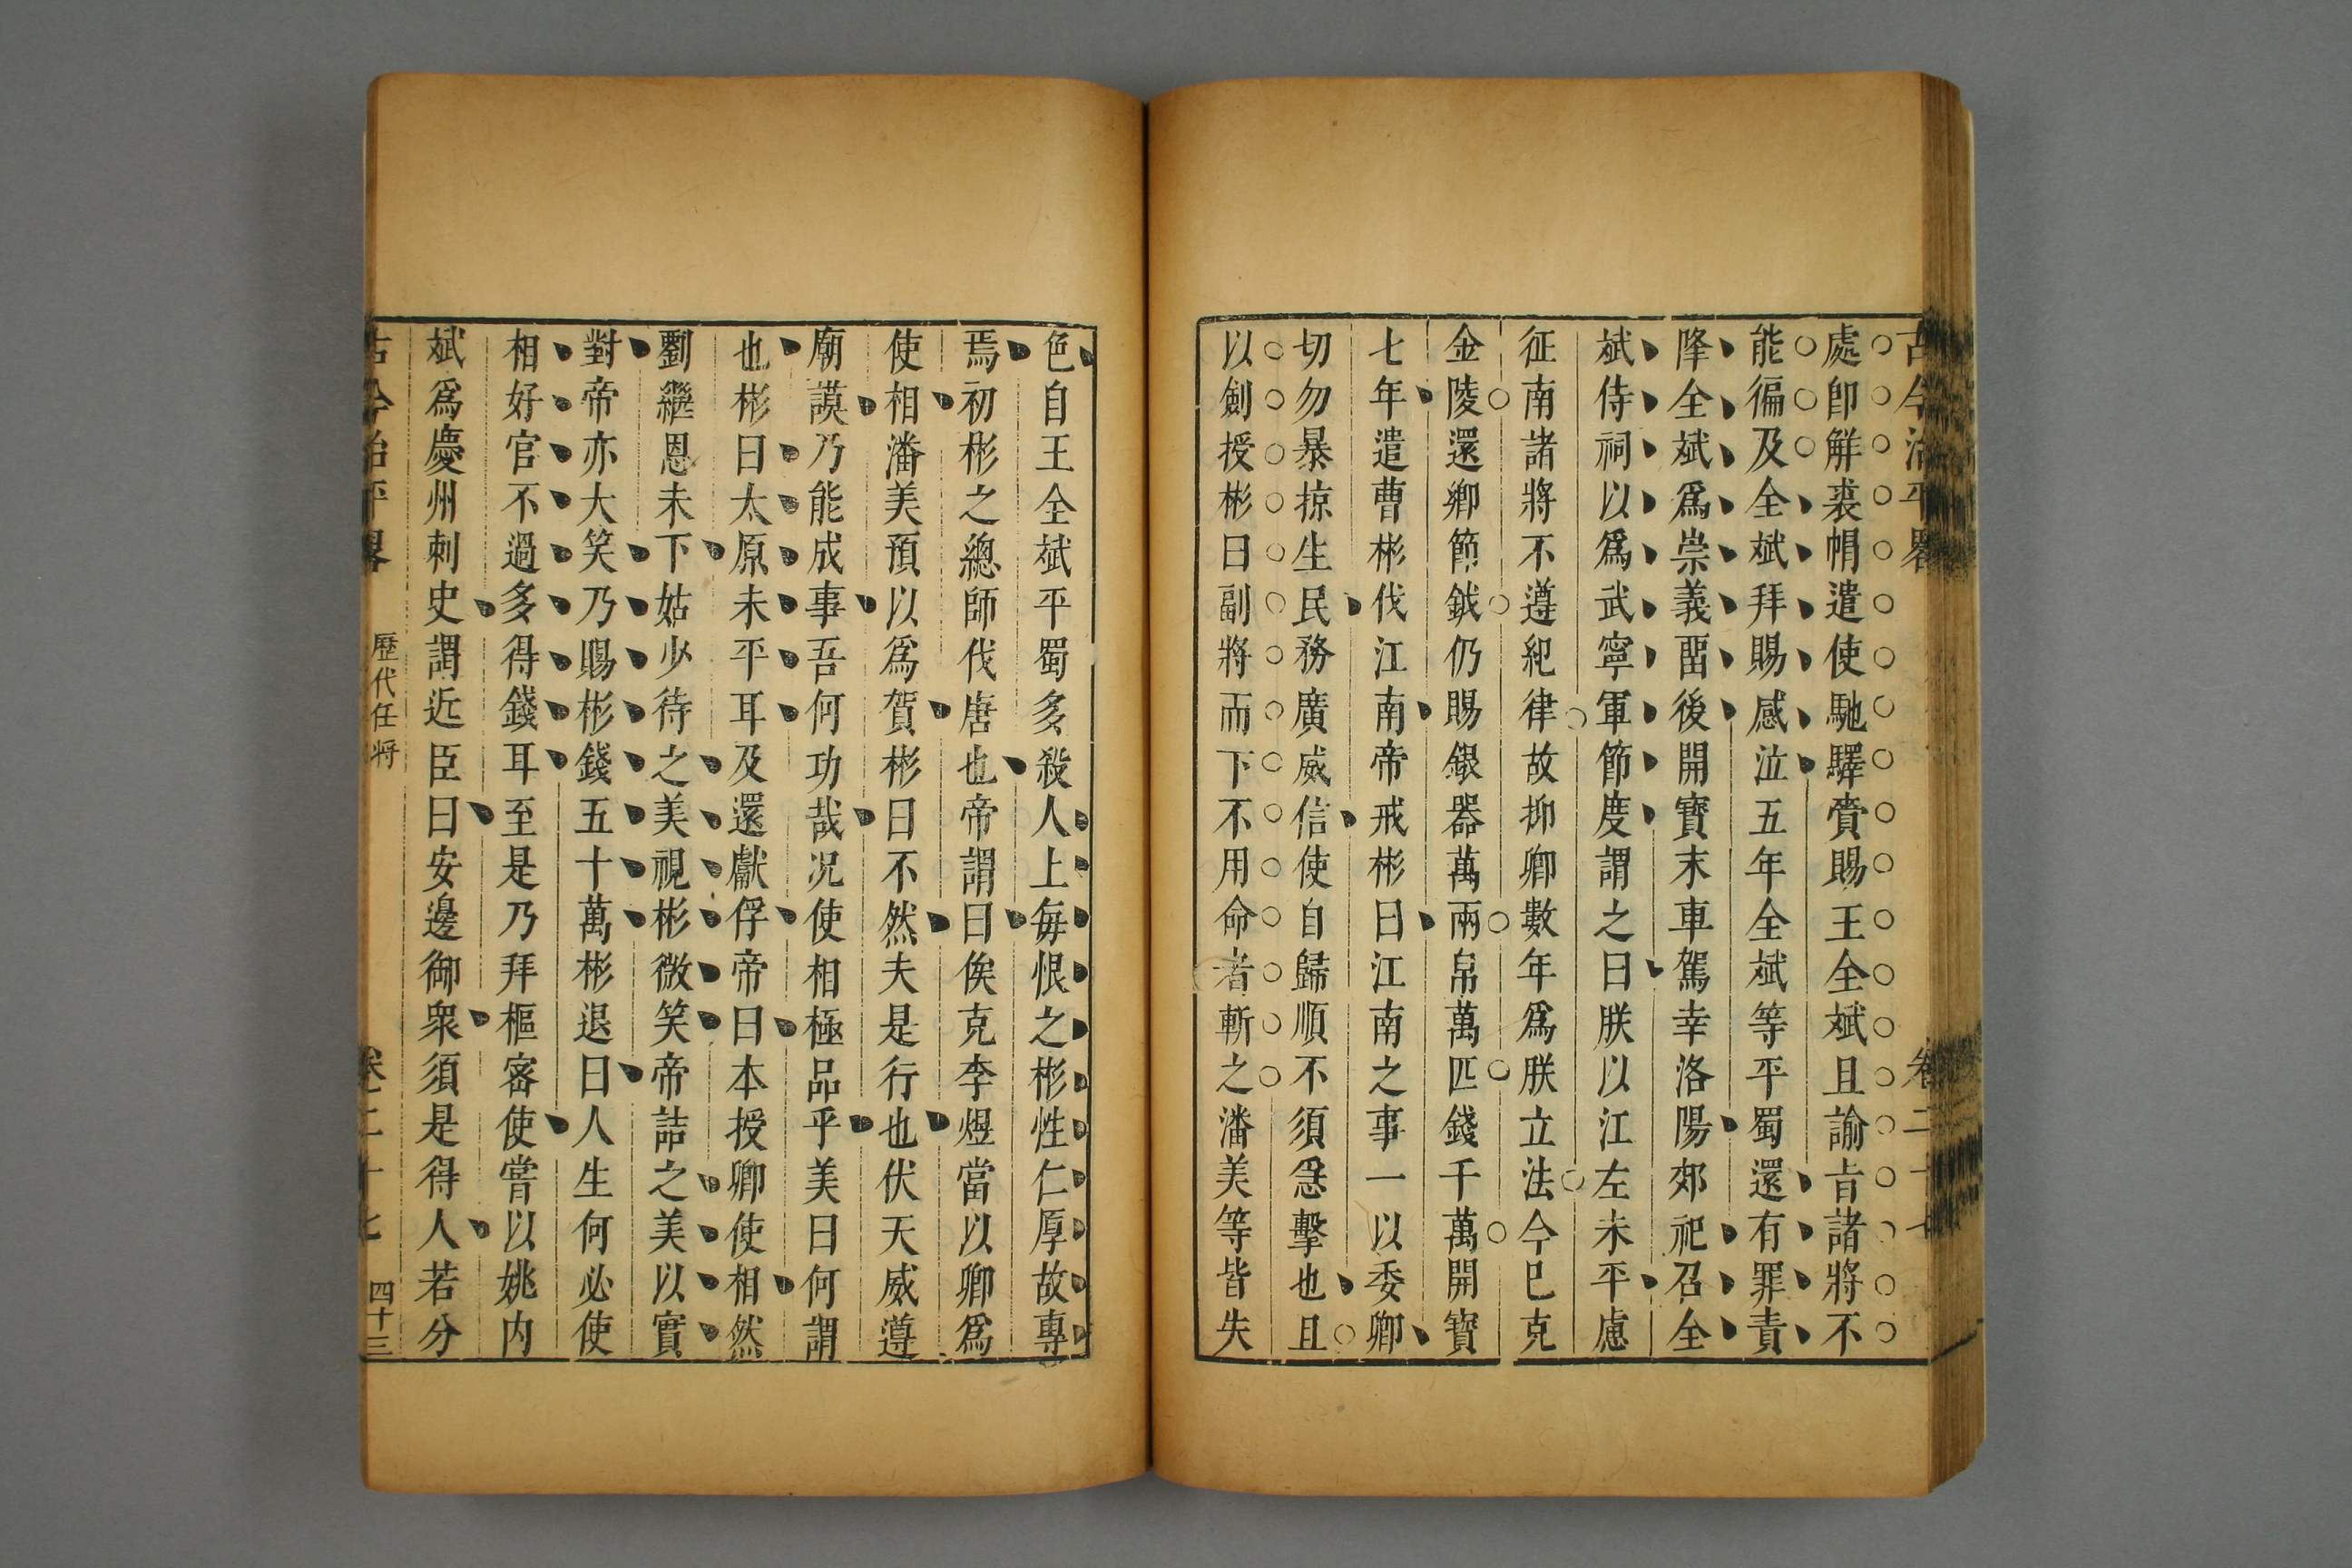 古今治平畧 卷二十七
處卽解裘帽遣使馳驛賫賜王全斌且諭旨諸將不
能徧及全斌拜賜感泣五年全斌等平蜀還有罪責
降全斌爲崇義畱後開寶末車駕幸洛陽郊祀召全
斌侍祠以爲武寧軍節度謂之曰朕以江左未平慮
征南諸將不遵紀律故抑卿數年爲朕立法今已克
金陵還卿節鉞仍賜銀器萬兩帛萬匹錢千萬開寶
七年遣曹彬伐江南帝戒彬曰江南之事一以委卿
切勿暴掠生民務廣威信使自歸順不須急擊也且
以劍授彬曰副將而下不用命者斬之潘美等皆失
色自王全斌平蜀多殺人上每恨之彬性仁厚故專
焉初彬之總師伐唐也帝謂曰俟克李煜當以卿爲
使相潘美預以爲賀彬曰不然夫是行也伏天威遵
廟謨乃能成事吾何功哉况使相極品乎美曰何謂
也彬曰太原未平耳及還獻俘帝曰本授卿使相然
劉繼恩未下姑少待之美視彬微笑帝詰之美以實
對帝亦大笑乃賜彬錢五十萬彬退曰人生何必使
相好官不過多得錢耳至是乃拜樞密使嘗以姚内
斌爲慶州刺史謂近臣曰安邊御衆須是得人若分
古今治平畧 歷代任將 卷二十七 四十三